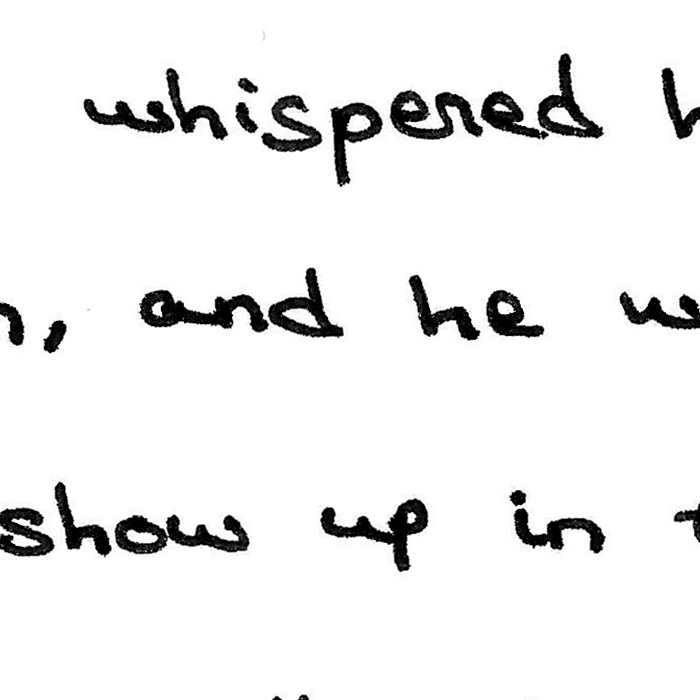 whispered
, and he
show up in